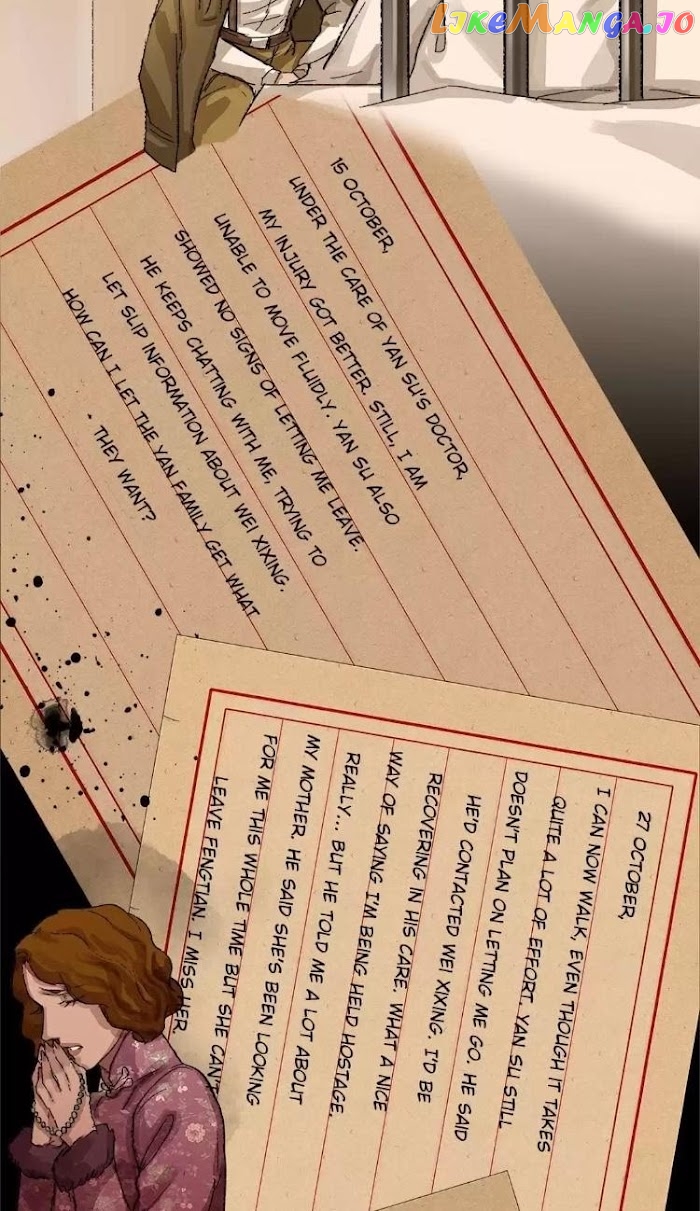 LIKEMANGA.IO
15 OCTOBER,
UNDER THE CARE OF YAN SU'S DOCTOR,
MY INJURY GOT BETTER. STILL, I AM
UNABLE TO MOVE FLUIDLY. YAN SU ALSO
SHOWED NO SIGNS OF LETTING ME LEAVE.
HE KEEPS CHATTING WITH ME, TRYING TO
LET SLIP INFORMATION ABOUT WEI XIXING.
HOW CAN I LET THE YAN FAMILY GET WHAT
THEY WANT?
27 OCTOBER,
I CAN NOW WALK, EVEN THOUGH IT TAKES
QUITE A LOT OF EFFORT. YAN SU STILL
DOESN'T PLAN ON LETTING ME GO. HE SAID
HE'D CONTACTED WEI XIXING. I'D BE
RECOVERING IN HIS CARE. WHAT A NICE
WAY OF SAYING I'M BEING HELD HOSTAGE,
REALLY... BUT HE TOLD ME A LOT ABOUT
MY MOTHER. HE SAID SHE'S BEEN LOOKING
FOR ME THIS WHOLE TIME BUT SHE CAN'T
LEAVE FENGTIAN. I MISS HER.